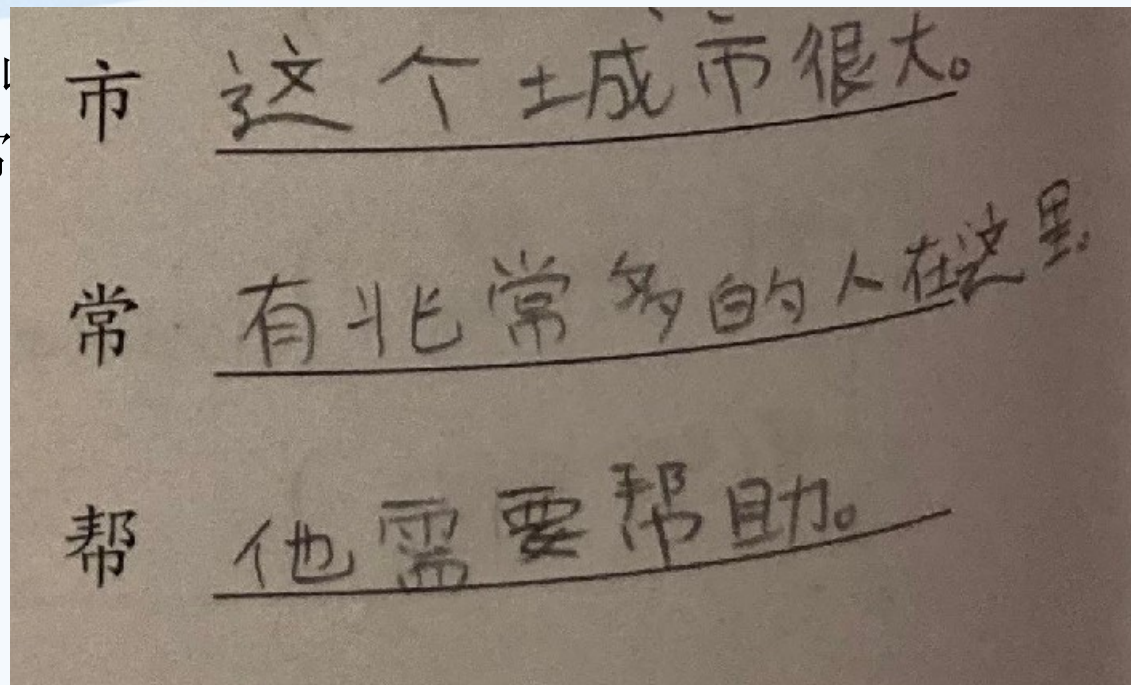 市 这个城市很大。
常 有非常多的人在这里。
帮 他需要帮助。